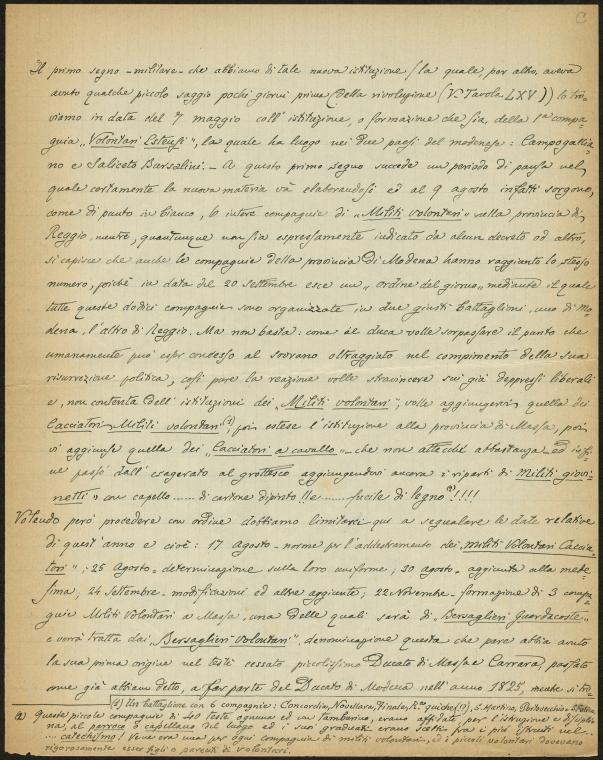 C
Il primo segno - militare - che abbiamo di tale nuova istituzione (la quale, per altro, aveva
avuto qualche piccolo saggio pochi giorni prima della rivoluzione (V. Tavola LXV)) lo tro-
viamo in data del 7 maggio coll'istituzione, o formazione che sia, della 1ª compa-
gnia "Volontari Estensi", la quale ha luogo nei due paesi del modenese: Campogallia-
no e Saliceto Bursalini. - A questo primo segno succede un periodo di pausa nel
quale certamente la nuova materia va elaborandosi ed al 9 agosto infatti sorgono,
come di punto in bianco, 6 intere compagnie di "Militi volontari" nella provincia di
Reggio mentre, quantunque non sia espressamente indicato da alcun decreto od altro,
si capisce che anche le compagnie della provincia di Modena hanno raggiunto lo stesso
numero, poichè in data del 20 settembre esce un "ordine del giorno" mediante il quale
tutte queste dodici compagnie sono organizzate in due giusti battaglioni, uno di Mo-
dena, l'altro di Reggio. Ma non basta: come il duca volle sorpassare il punto che
umanamente può esser concesso al sovrano oltraggiato nel compimento della sua
risurrezione politica, così pure la reazione volle stravincere sui già depressi liberali
e, non contenta dell'istituzioni dei "Militi volontari", volle aggiungervi quella dei
Cacciatori Militi volontari (1), poi estese l'istituzione alla provincia di Massa, poi
vi aggiunse quella dei "Cacciatori a cavallo" - che non attecchì abbastanza - ed infi-
ne passò dall'esagerato al grottesco aggiungendovi ancora i riparti di Militi giovi-
netti" con cappello ...... di cartone dipinto!! e ...... fucile di legno (2)!!!!
Volendo però procedere con ordine dobbiamo limitarci qui a segnalare le date relative
di quest'anno e cioè: 17 Agosto - norme per l'addestramento dei "Militi Volontari Caccia-
tori"; 25 Agosto - determinazione sulla loro uniforme; 30 agosto - aggiunta alla mede-
sima; 24 Settembre - modificazioni ed altre aggiunte; 22 Novembre - formazione di 3 compa-
gnie Militi Volontari a Massa, una delle quali sarà di "Bersaglieri Guardacoste"
e verrà tratta dai "Bersaglieri Volontari", denominazione questa che pare abbia avuto
la sua prima origine nel testè cessato piccolissimo Ducato di Massa e Carrara, passato
come già abbiam detto, a far parte del Ducato di Modena nell'anno 1829, mentre si tro-
(1) Un battaglione con 6 compagnie: Concordia, Novellara, Finale, S. Martino, Portovecchio
(2) Queste piccole compagnie di 40 teste ognuna ed un tamburino, erano affidate, per l'istruzione e discipli-
na, al parroco o cappellano del luogo ed i suoi graduati erano scelti fra i più istruiti nel..
.... catechismo! Ve ne era una per ogni compagnia di militi volontari, ed i piccoli volontari dovevano
rigorosamente esser figli o parenti di volontari.